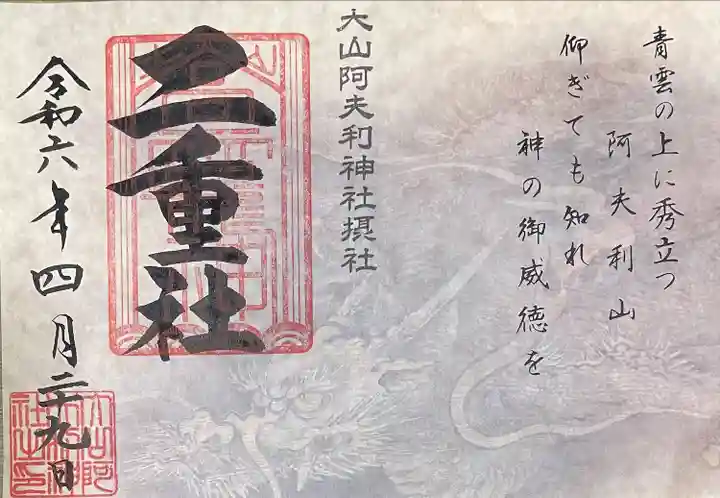 青雲の上に秀立つ
阿夫利山
仰ぎても知れ
神の御威徳を
大山阿夫利神社摂社
二重社
令和六年四月二十九日